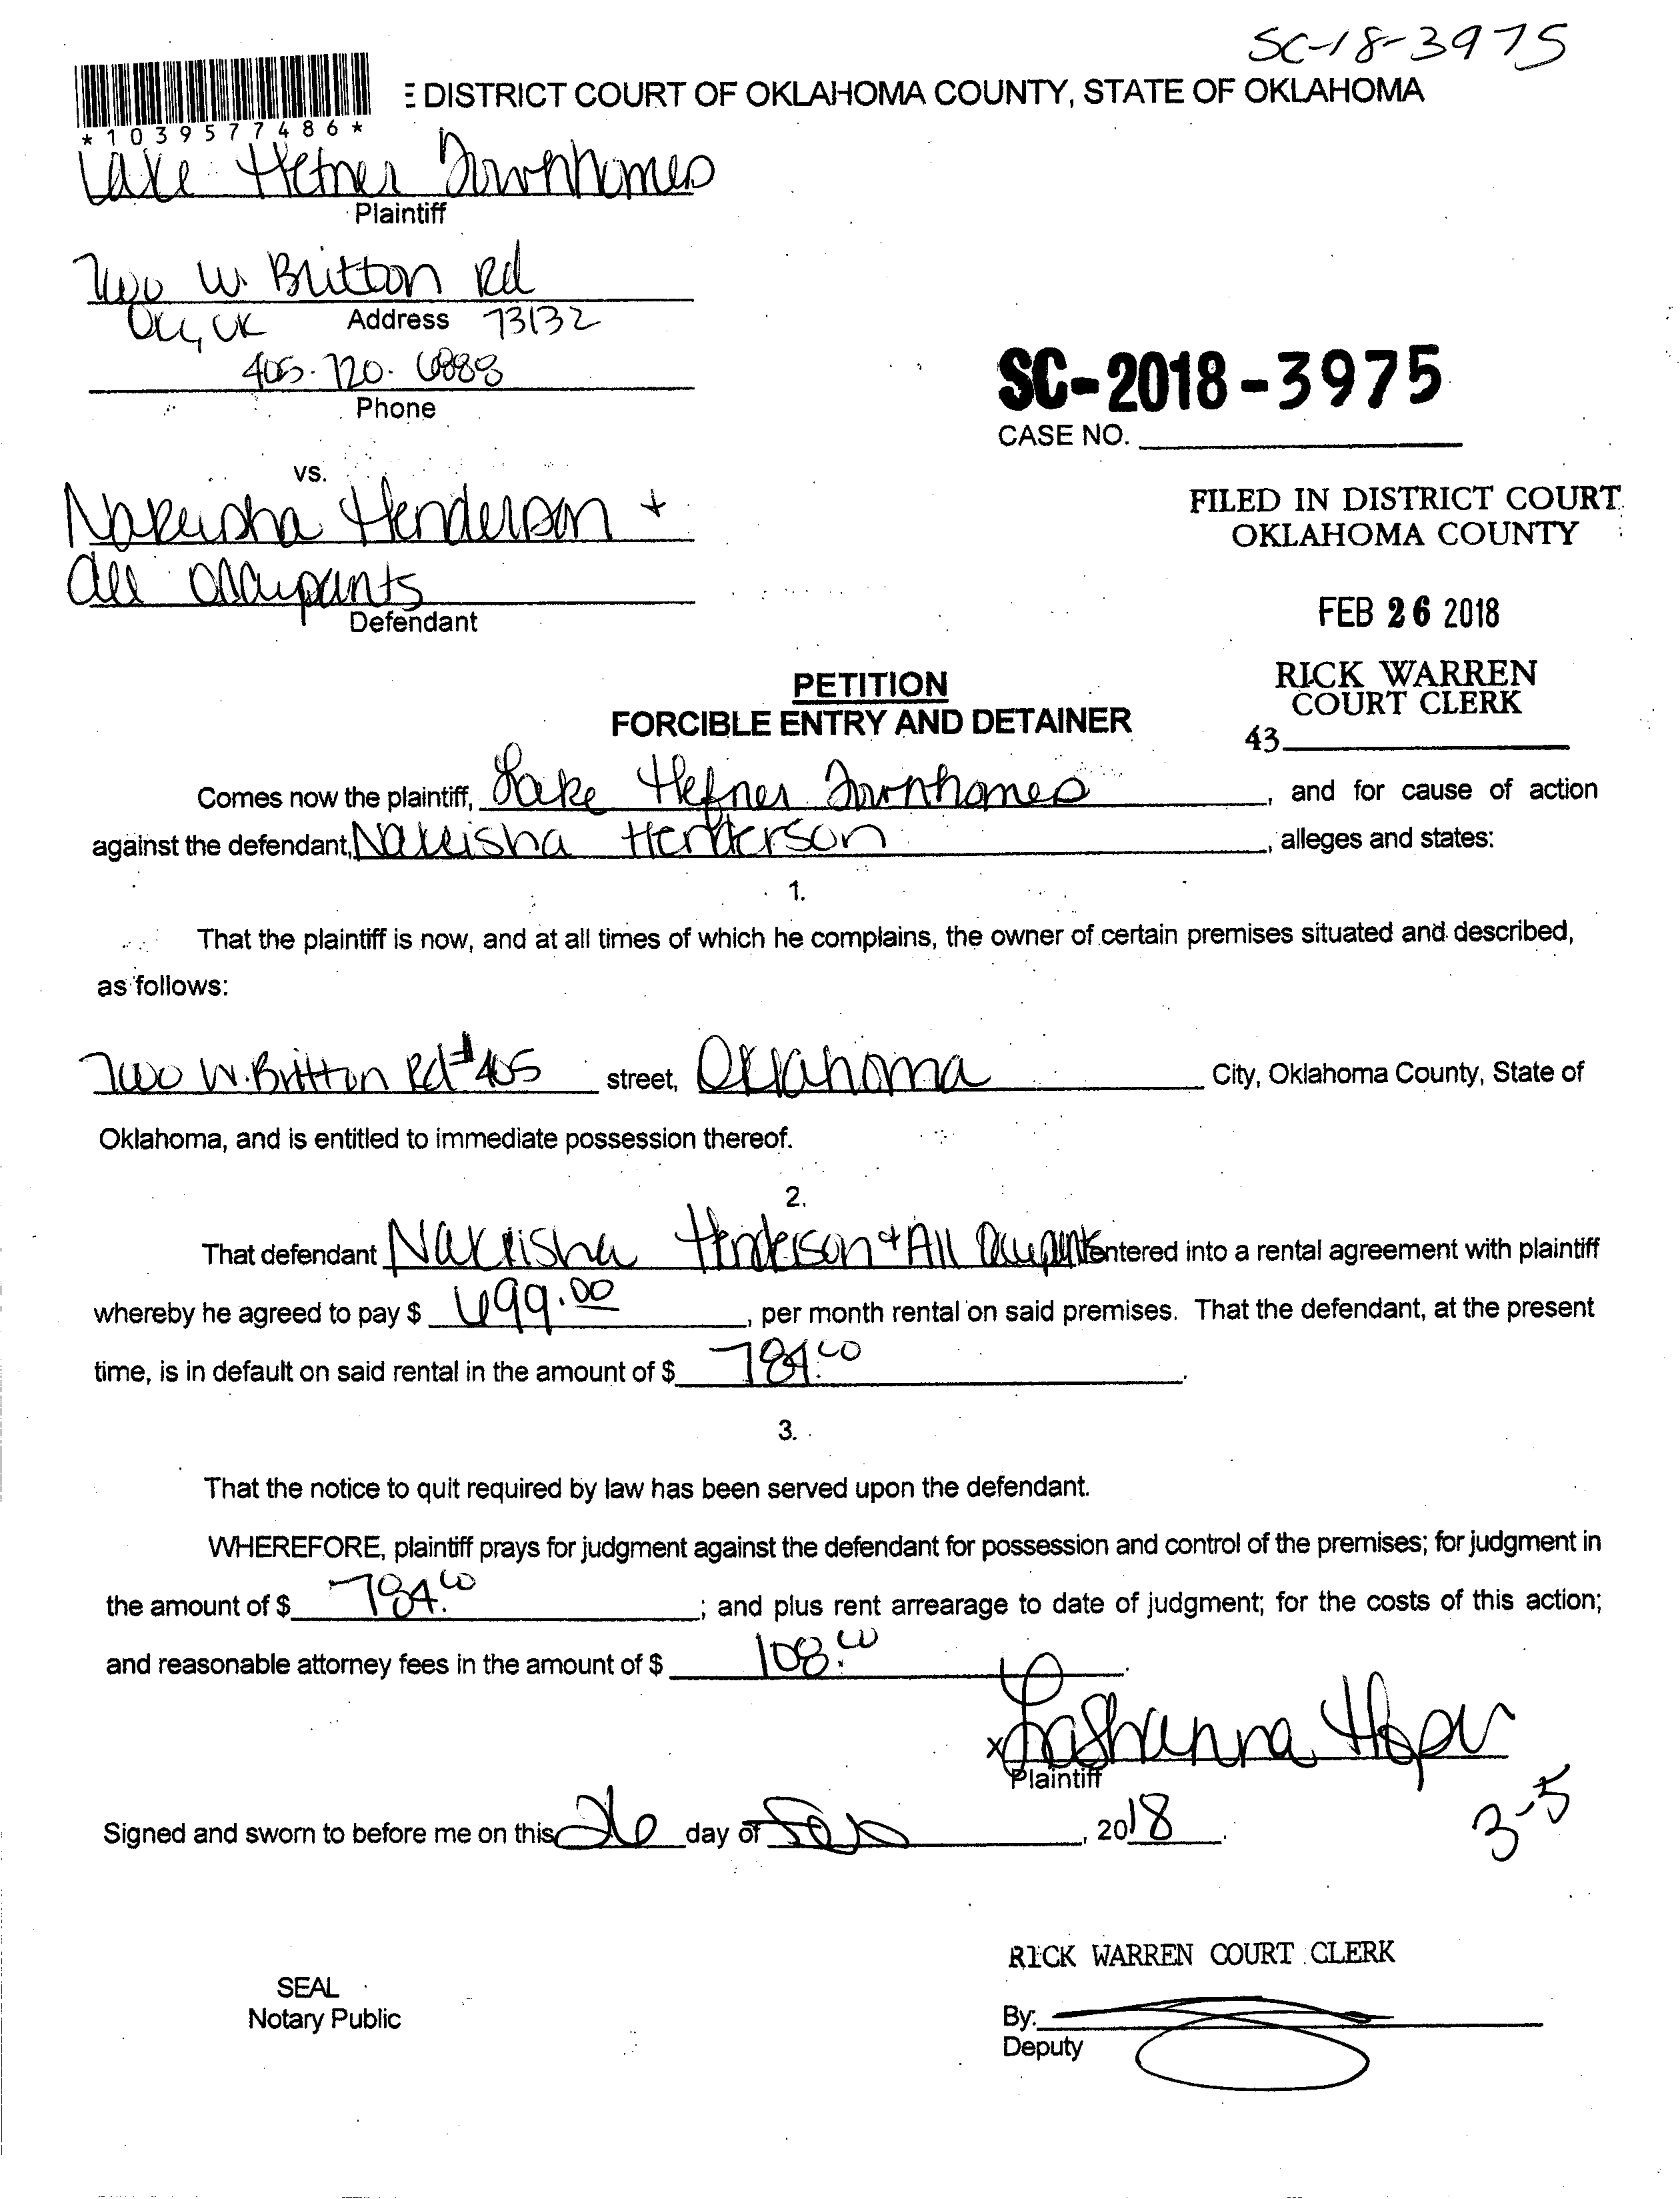 SC-18-3975
E DISTRICT COURT OF OKLAHOMA COUNTY, STATE OF OKLAHOMA
*1039577486*
Lake Hefner Townhomes
Plaintiff
W. Britton Rd
Address
OKC, OK 73132
405-720-6888
Phone
SC-2018-3975
CASE NO.
vs.
Nakeisha Henderson +
all occupants
Defendant
FILED IN DISTRICT COURT
OKLAHOMA COUNTY
FEB 26 2018
RICK WARREN
COURT CLERK
43
PETITION
FORCIBLE ENTRY AND DETAINER
Comes now the plaintiff, Lake Hefner Townhomes, and for cause of action
against the defendant, Nakeisha Henderson, alleges and states:
1.
That the plaintiff is now, and at all times of which he complains, the owner of certain premises situated and described,
as follows:
W. Britton Rd #405 street, Oklahoma City, Oklahoma County, State of
Oklahoma, and is entitled to immediate possession thereof.
2.
That defendant Nakeisha Henderson + All Occupants entered into a rental agreement with plaintiff
whereby he agreed to pay $ 699.00, per month rental on said premises. That the defendant, at the present
time, is in default on said rental in the amount of $ 784.00.
3.
That the notice to quit required by law has been served upon the defendant.
WHEREFORE, plaintiff prays for judgment against the defendant for possession and control of the premises; for judgment in
the amount of $ 784.00; and plus rent arrearage to date of judgment; for the costs of this action;
and reasonable attorney fees in the amount of $ 108.00.
x Lashanna
Plaintiff
3-5
Signed and sworn to before me on this 26 day of Feb, 2018.
RICK WARREN COURT CLERK
SEAL
Notary Public
By:
Deputy